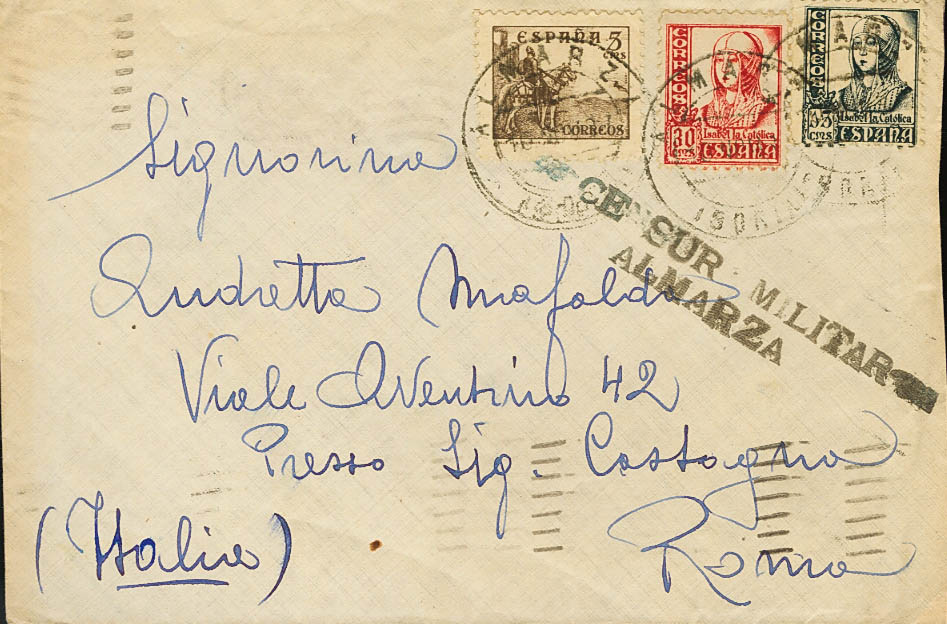 ESPAÑA 5 CTS
CORREOS
CORREOS
30 CTS
Isabel la Católica
ESPAÑA
CORREOS
CTS
Isabel la Católica
ESPAÑA
ALMARZA
CENSUR MILITAR
ALMARZA
Signorina
Andretta Mafalda
Viale Aventino 42
Presso Sig. Castagna
(Italia) Roma